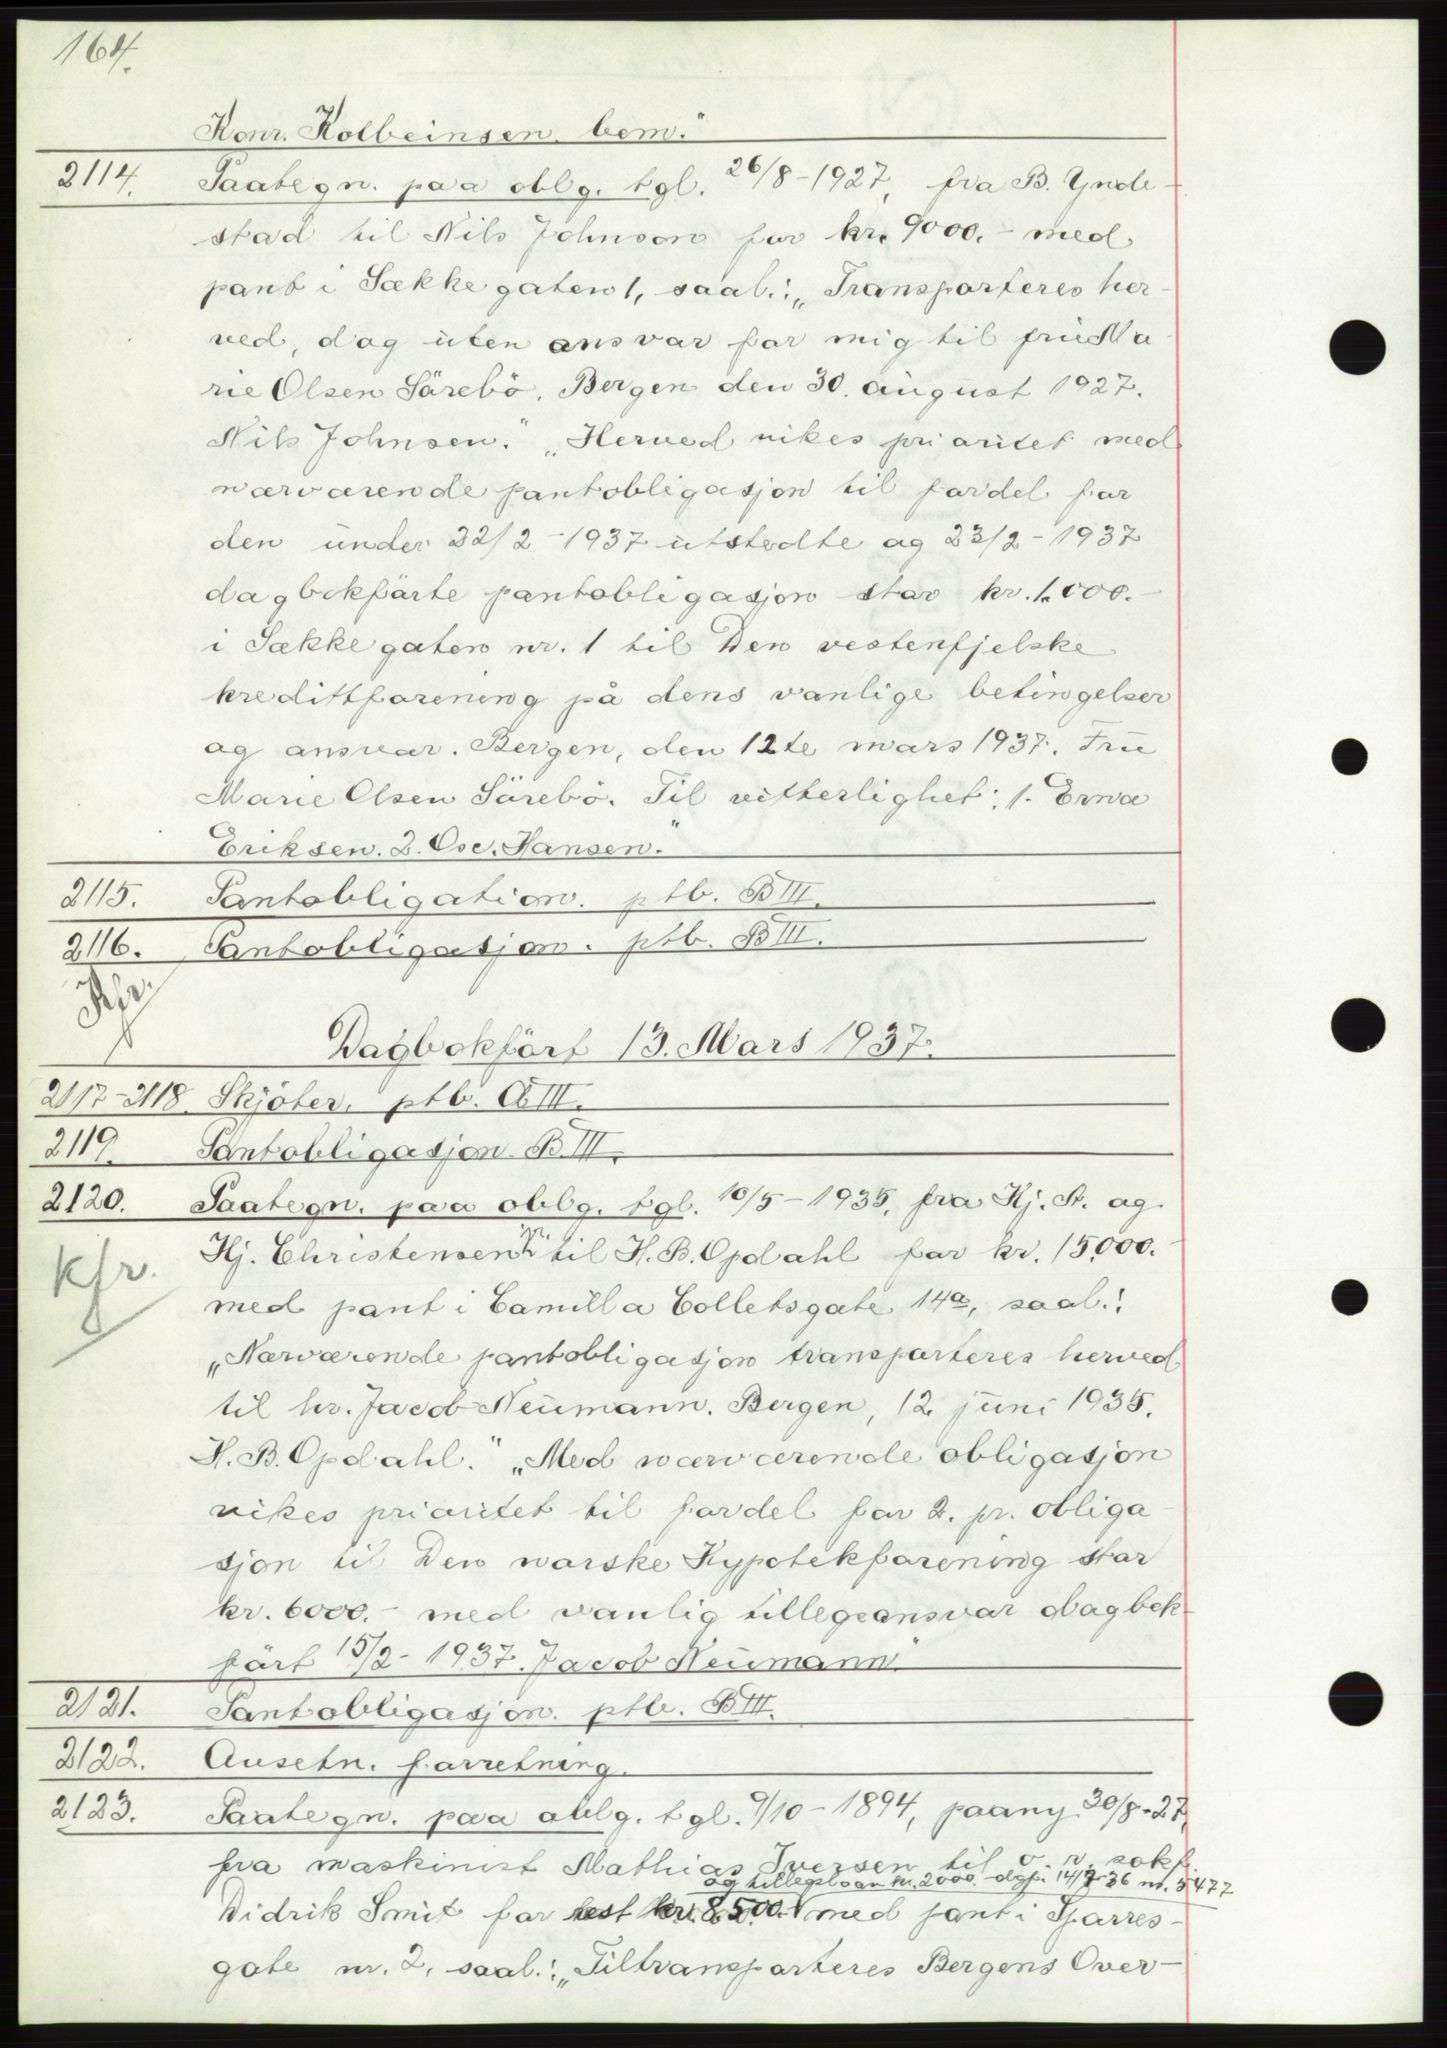 164.
Konr. Kolbeinsen bem."
2114. Paategn. paa oblg. tgl. 26/8-1927, fra B. Ynde-
stad til Nils Johnson for kr. 9000.- med
pant i Sækkegaten 1, saal.: „Transporteres her-
ved, dog uten ansvar for mig til frü Ma-
rie Olsen Sörebö. Bergen den 30. august 1927.
Nils Johnsen." „Herved vikes prioritet med
nærværende pantobligasjon til fordel for
den under 22/2-1937 utstedte og 23/2-1937
dagbokförte pantobligasjon stor kr. 1.000.-
i Sækkegaten nr. 1 til Den vestenfjelske
kredittforening på dens vanlige betingelser
og ansvar. Bergen, den 12te mars 1937. Frü
Marie Olsen Sörebö. Til vitterlighet: 1. Erna
Eriksen. 2. Osc. Hansen."
2115. Pantobligation. ptb. B III.
2116. Pantobligasjon. ptb. B III.
Kfr.
Dagbokfört 13. Mars 1937.
2117-2118. Skjöter. ptb. A III.
2119. Pantobligasjon. B III.
2120. Paategn. paa oblg. tgl. 10/5-1935, fra Hj. St. og
Hj. Christensen jr. til H. B. Opdahl for kr. 15000.
kfr.
med pant i Camilla Colletsgate 14a, saal.:
„Nærværende pantobligasjon transporteres herved
til hr. Jacob Neümann. Bergen, 12 jüni 1935.
H. B. Opdahl." „Med nærværende obligasjon
vikes prioritet til fordel for 2. pr. obliga-
sjon til Den norske Hypotekforening stor
kr. 6000.- med vanlig tilleggsansvar dagbok-
fört 15/2-1937. Jacob Neümann."
2121. Pantobligasjon. ptb. B III.
2122. Ausetn. forretning.
2123. Paategn. paa oblg. tgl. 9/10-1894, paany 30/8-27,
fra maskinist Mathias Iversen til o. r. sakf.
og tilleggsloan kr. 2000.- dgf. 14/7-36 nr. 5477
Didrik Smit for rest kr. 8500.- med pant i Sparres-
gate nr. 2, saal.: „Tiltransporteres Bergens Over-